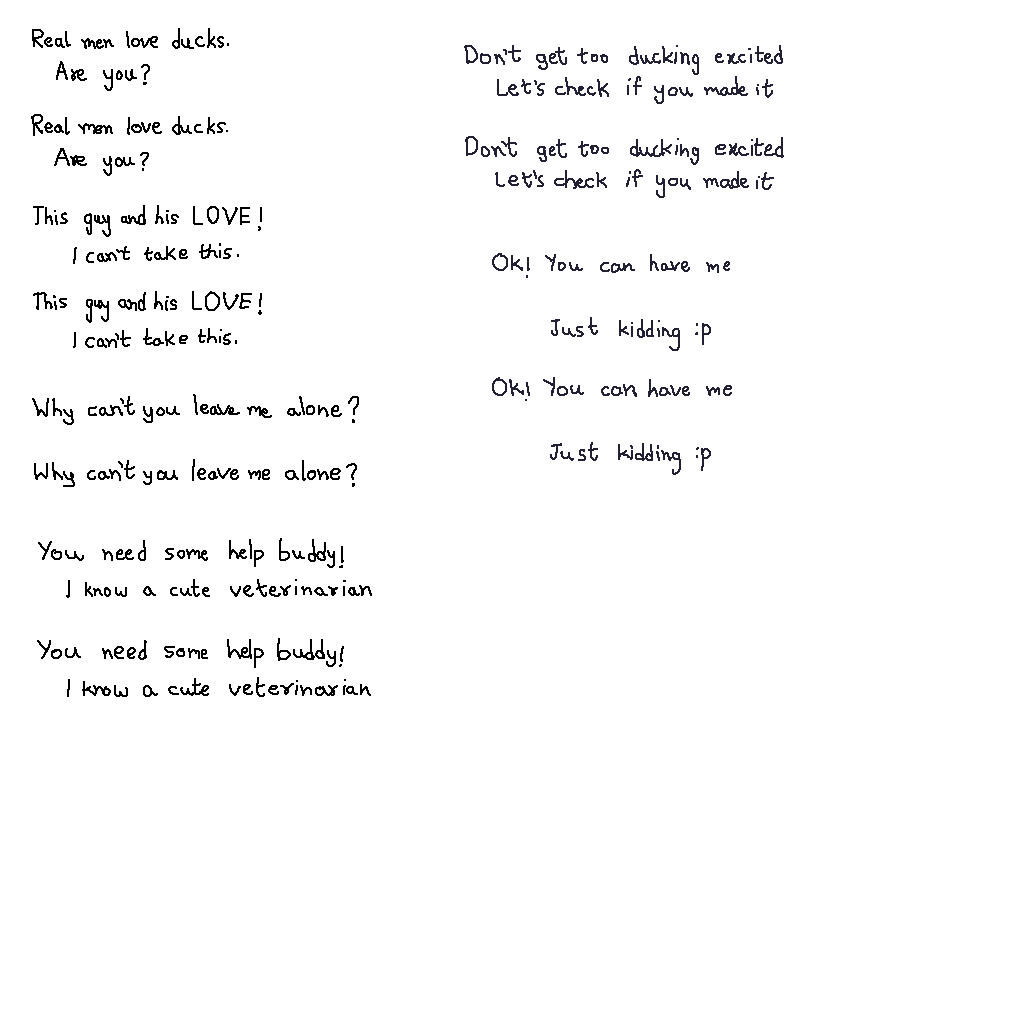 Real men love ducks.
Are you?
Real men love ducks.
Are you?
This guy and his LOVE!
I can't take this.
This guy and his LOVE!
I can't take this.
Why can't you leave me alone?
Why can't you leave me alone?
You need some help buddy!
I know a cute veterinarian
You need some help buddy!
I know a cute veterinarian
Don't get too ducking excited
Let's check if you made it
Don't get too ducking excited
Let's check if you made it
Ok! You can have me
Just kidding :p
Ok! You can have me
Just kidding :p